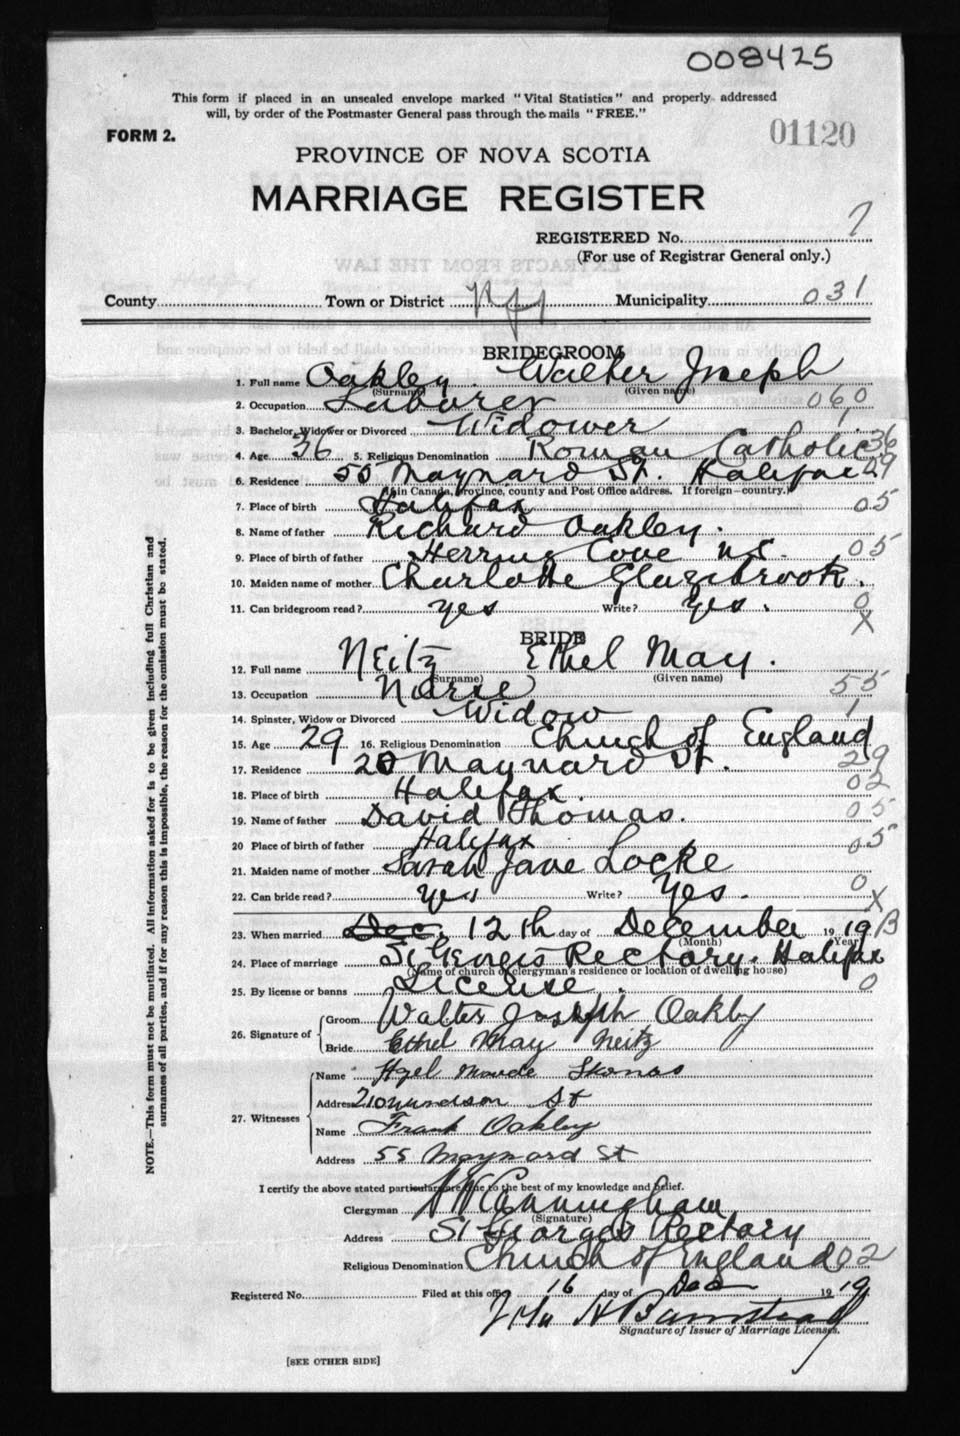 008425
This form if placed in an unsealed envelope marked "Vital Statistics" and properly addressed
will, by order of the Postmaster General pass through the mails "FREE."
FORM 2.
01120
PROVINCE OF NOVA SCOTIA
MARRIAGE REGISTER
REGISTERED No. 7
(For use of Registrar General only.)
County Town or District Municipality 031
BRIDEGROOM
1. Full name Oakley Walter Joseph
(Surname) (Given name)
2. Occupation Laborer 060
3. Bachelor, Widower or Divorced Widower 1
4. Age 36 5. Religious Denomination Roman Catholic 36
6. Residence 55 Maynard St. Halifax 29
(If in Canada, province, county and Post Office address. If foreign—country.)
7. Place of birth Halifax 05
8. Name of father Richard Oakley.
9. Place of birth of father Herring Cove N.S. 05
10. Maiden name of mother Charlotte Glazebrook.
11. Can bridegroom read? yes Write? yes. 0
X
BRIDE
12. Full name Neitz Ethel May.
(Surname) (Given name)
13. Occupation Nurse 55
14. Spinster, Widow or Divorced Widow 1
15. Age 29 16. Religious Denomination Church of England
17. Residence 20 Maynard St. 29
18. Place of birth Halifax. 02
19. Name of father David Thomas. 05
20 Place of birth of father Halifax 05
21. Maiden name of mother Sarah Jane Locke
22. Can bride read? yes Write? Yes. 0
X
23. When married Dec. 12th day of December 1919 B
(Month) (Year)
24. Place of marriage St Georges Rectory. Halifax
(Name of church or clergyman's residence or location of dwelling house)
25. By license or banns License. 0
26. Signature of Groom Walter Joseph Oakley
Bride Ethel May Neitz
27. Witnesses Name Hazel Maude
Address 210 Windsor St
Name Frank Oakley
Address 55 Maynard St
I certify the above stated particulars are true to the best of my knowledge and belief.
Clergyman Cunningham
(Signature)
Address St Georges Rectory
Religious Denomination Church of England 02
Registered No. Filed at this office 16 day of Dec 1919
Signature of Issuer of Marriage Licenses.
[SEE OTHER SIDE]
NOTE.—This form must not be mutilated. All information asked for is to be given including full Christian and
surnames of all parties, and if for any reason this is impossible, the reason for the omission must be stated.